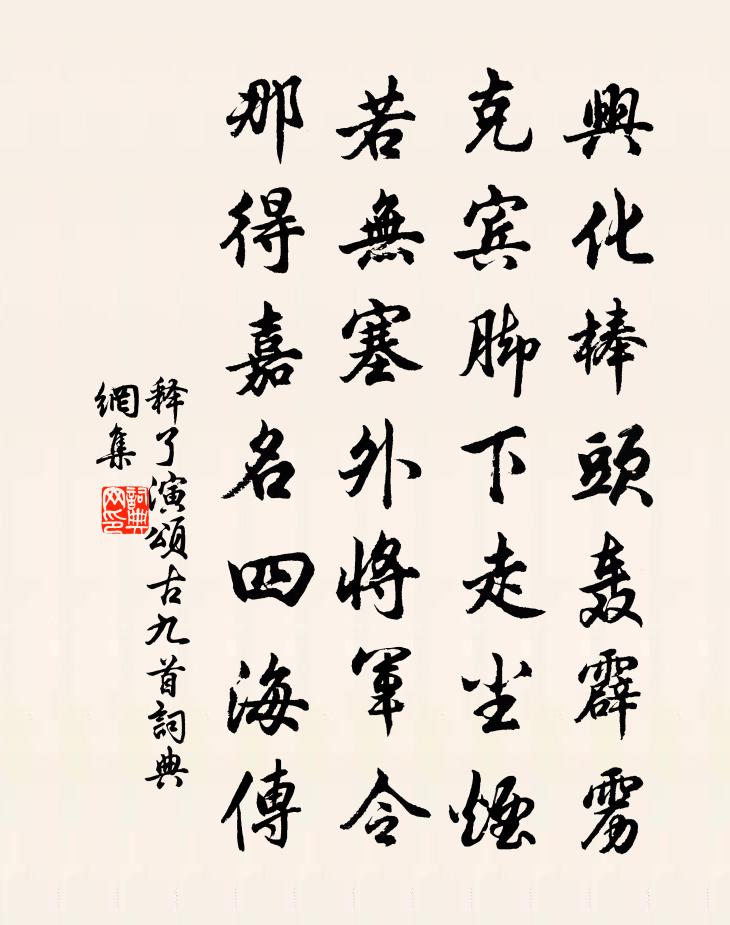 興化棒頭轰霹雳
克宾脚下走尘煙
若無塞外将軍令
那得嘉名四海傳
释了演頌古九首詞典
網集
詞典
网印